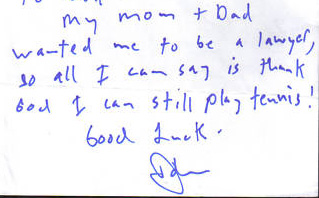 my mom + Dad
wanted me to be a lawyer,
so all I can say is thank
God I can still play tennis!
Good Luck.